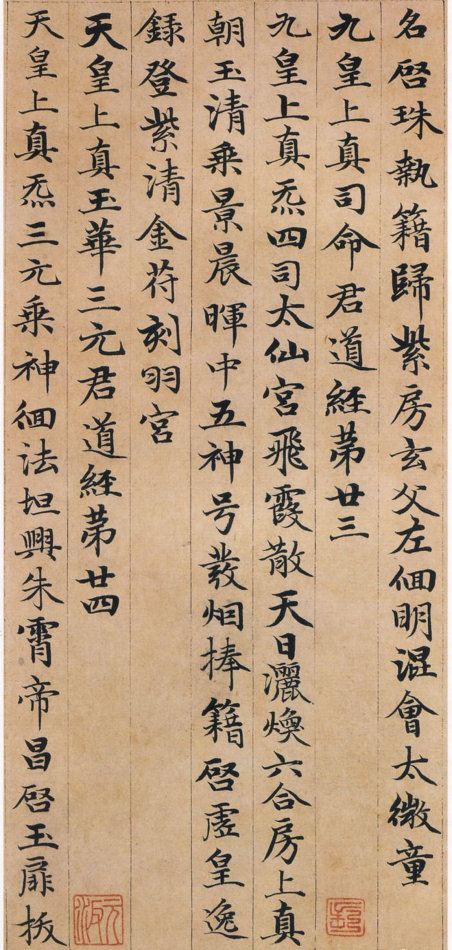 名啓珠執籍歸紫房玄父左徊明混會太微童
九皇上真司命君道經苐廿三
九皇上真炁四司太仙宮飛霞散天日灑煥六合房上真
朝玉清乗景晨暉中五神号裝烟捧籍啓虛皇逸
録登紫清金苻刻羽宮
天皇上真玉華三元君道經苐廿四
天皇上真炁三元乗神徊法坦興朱霄帝昌啓玉扉披